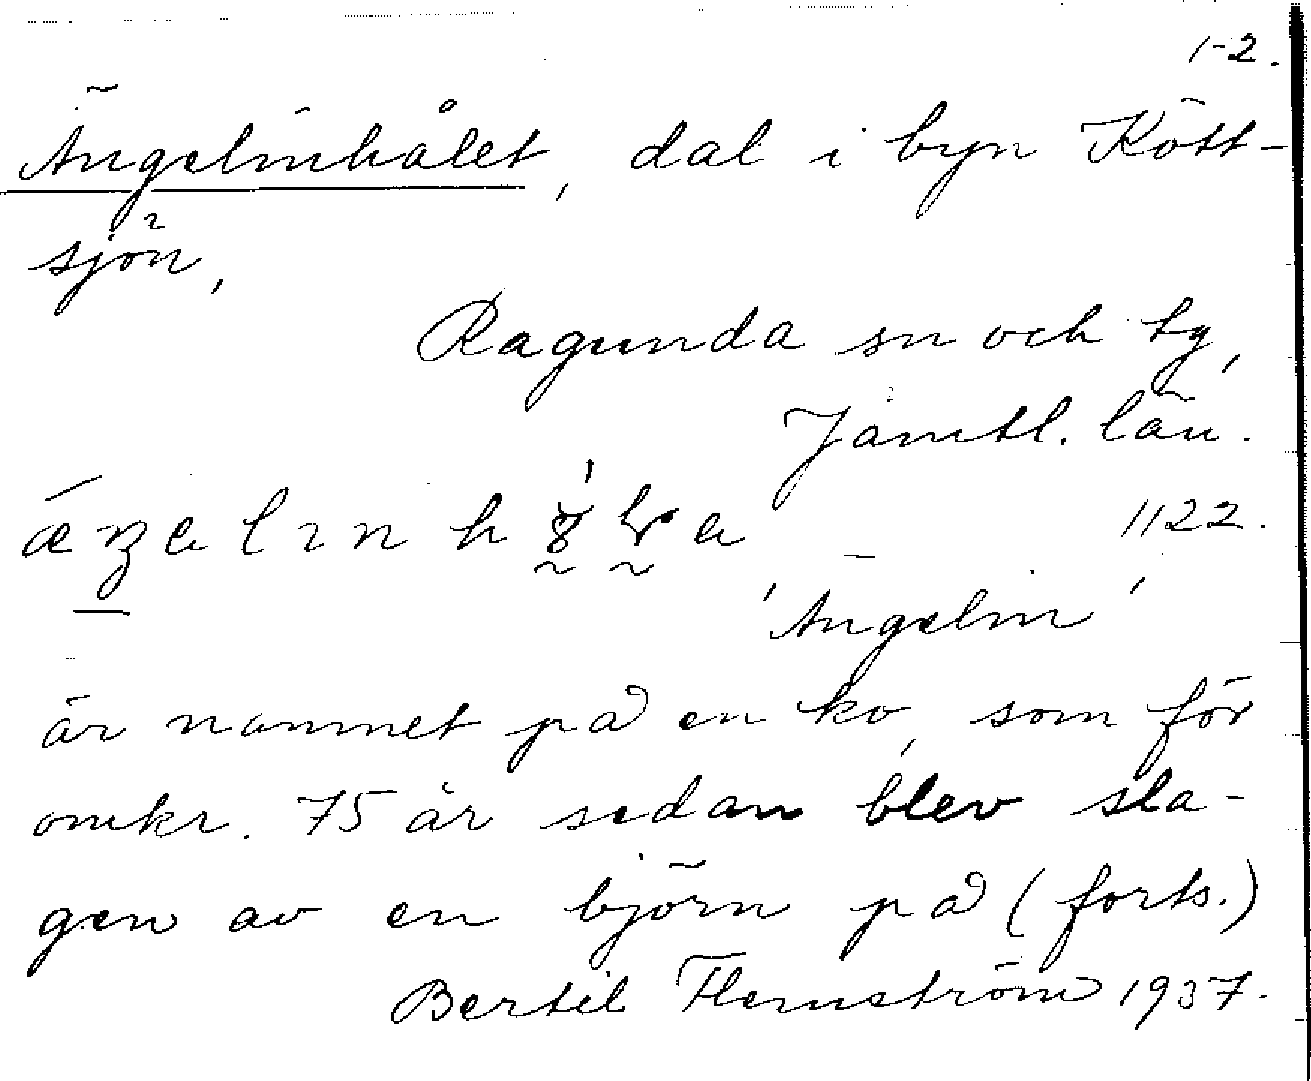 1-2.
Ängelinhålet, dal i byn Kött-
sjön,
Ragunda sn och tg,
Jämtl. län.
1122.
'Ängelin'
är namnet på en ko, som för
omkr. 75 år sedan blev sla-
gen av en björn på (forts.)
Bertil Flemström 1937.